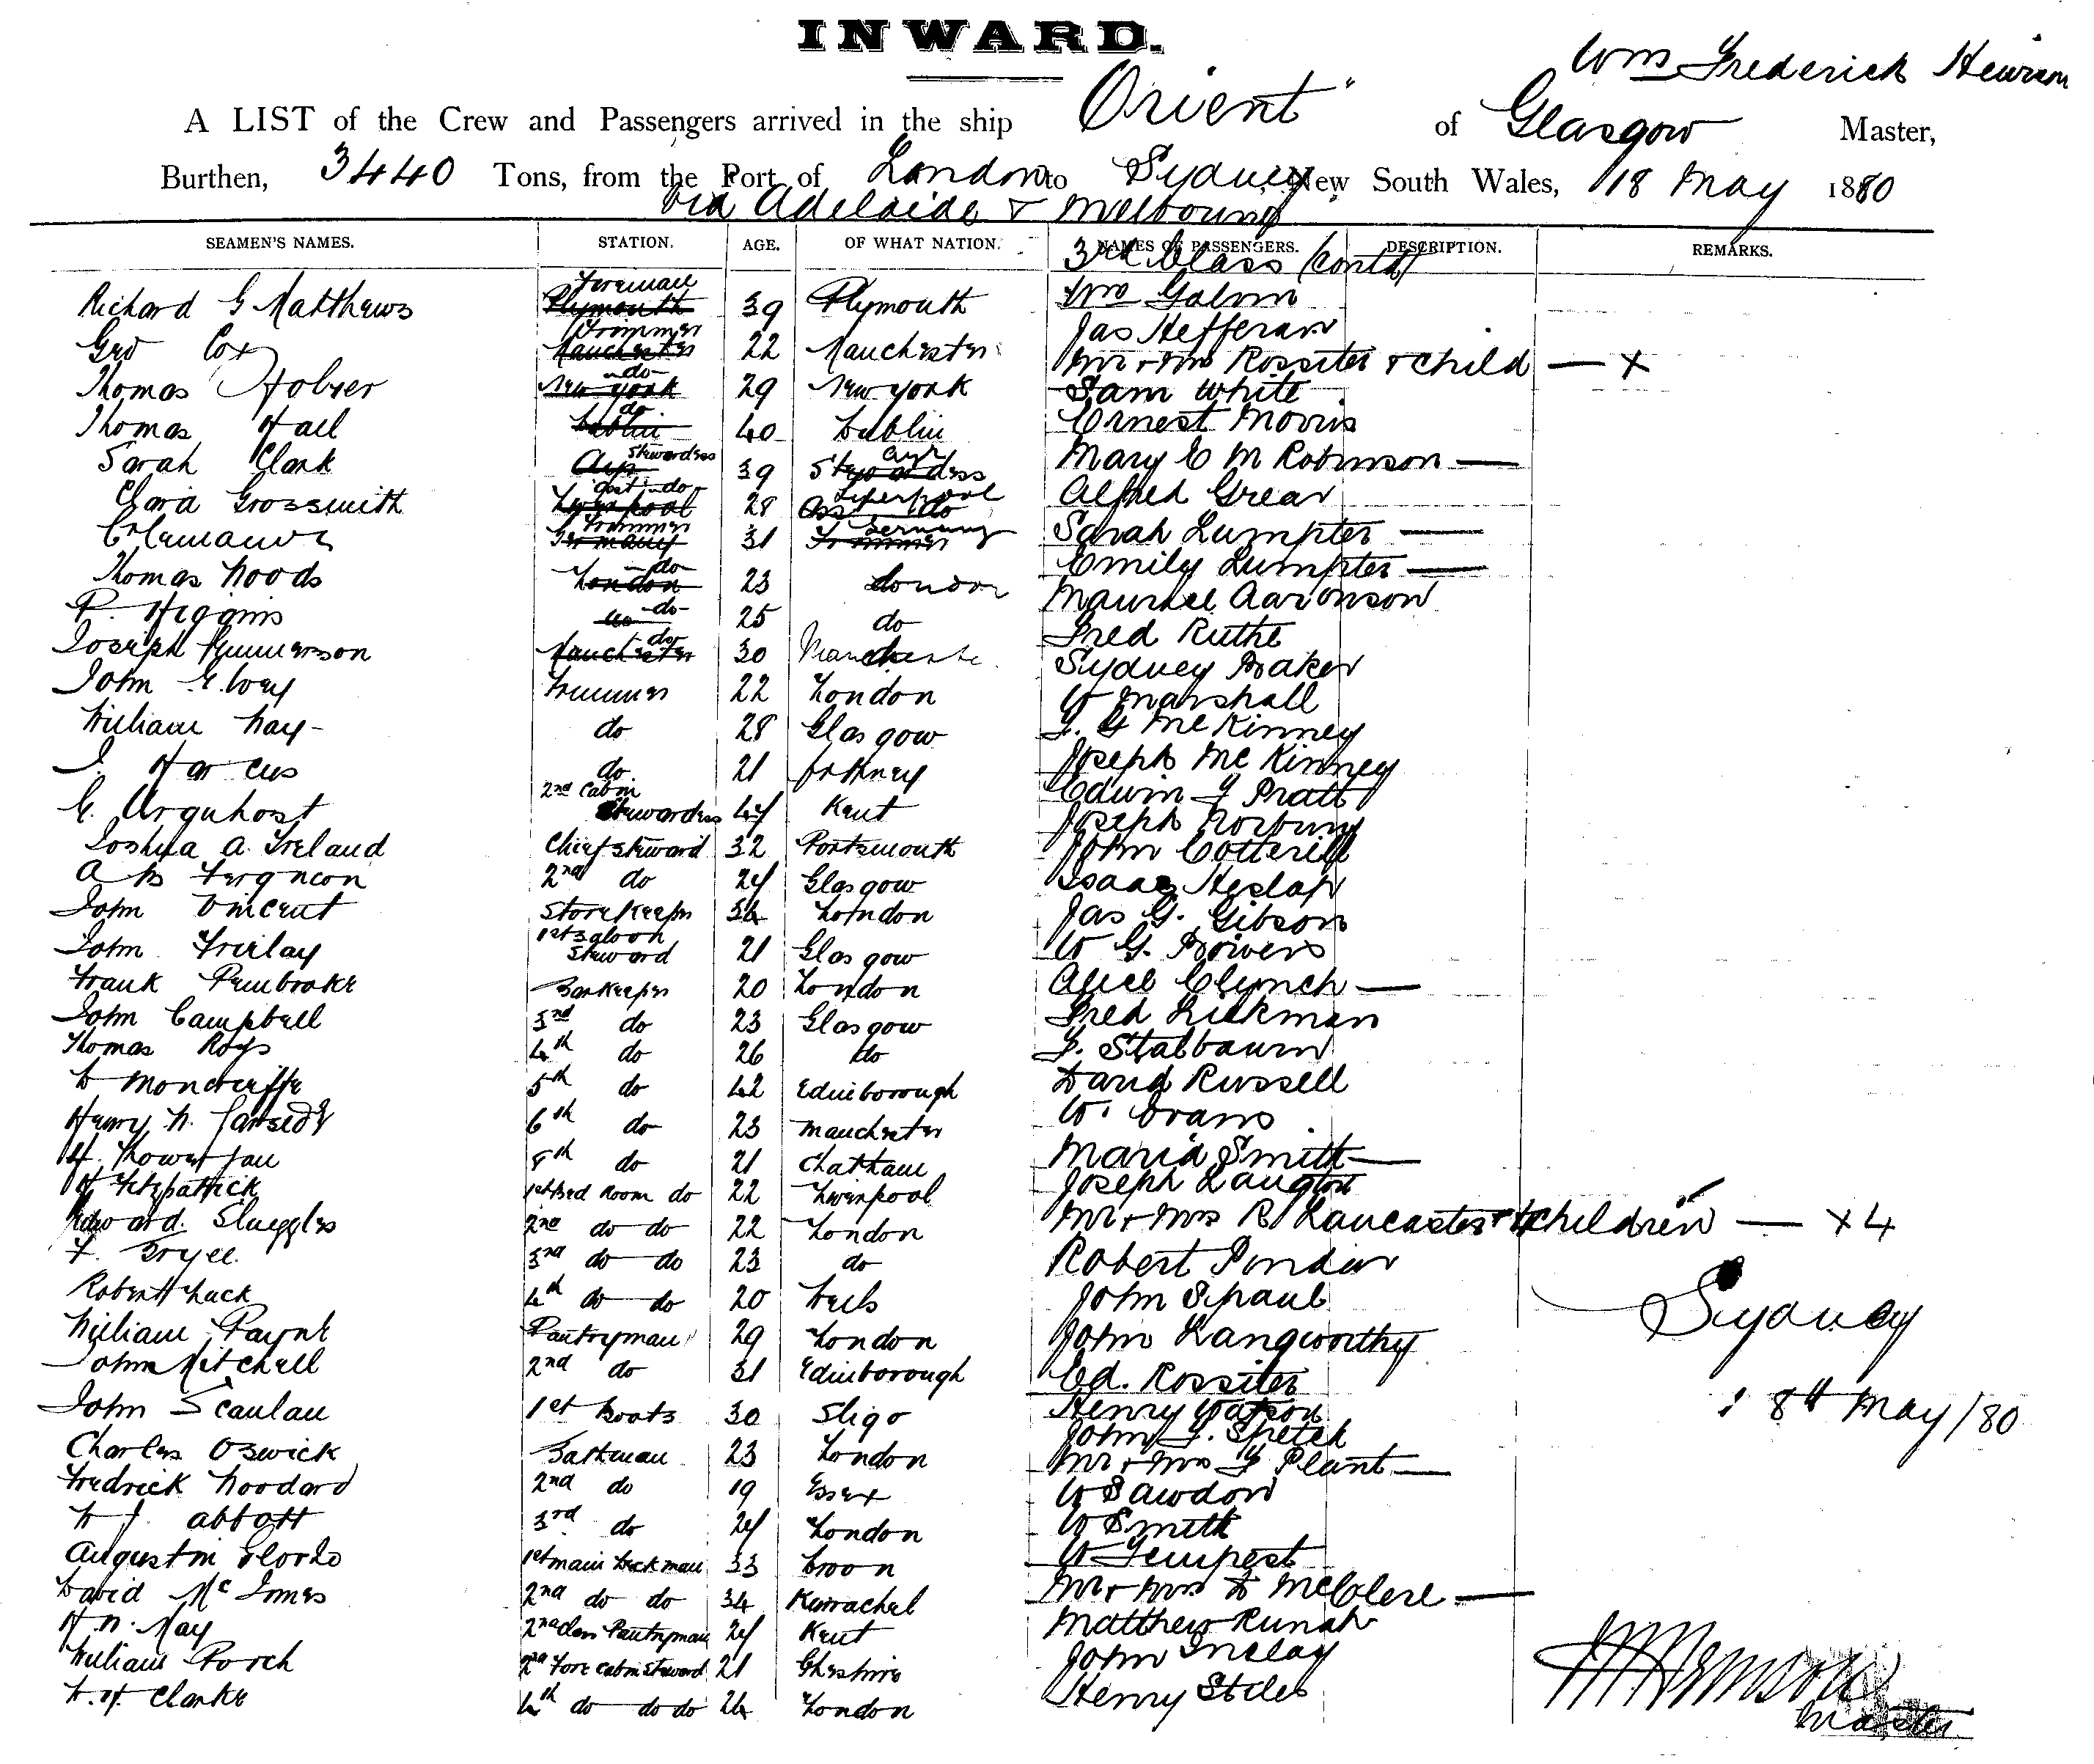 INWARD.
Wm Frederick Hewison
A LIST of the Crew and Passengers arrived in the ship "Orient" of Glasgow Master,
Burthen, 3440 Tons, from the Port of London to Sydney, New South Wales, 18 May 1880
via Adelaide & Melbourne
SEAMEN'S NAMES. STATION. AGE. OF WHAT NATION. NAMES OF PASSENGERS. DESCRIPTION. REMARKS.
3rd Class (contd)
Richard G Matthews Plymouth Foreman 39 Plymouth Wm Galvin
Geo Cox Manchester Trimmer 22 Manchester Jas Hefferan
Mr & Mrs Rossiter & child — x
Thomas New York do 29 New York Sam White
Thomas Hall Dublin do 40 Dublin Ernest Morris
Sarah Clark Ayr Stewardess 39 Stewardess Ayr Mary E M Robinson —
Clara Grossmith Liverpool Asst do 28 Asst do Liverpool Alfred Grear
Germany Trimmer 31 Trimmer Germany Sarah Lumpter —
Emily Lumpter —
Thomas Woods London do 23 London Maurice Aaronson
P. Higgins do do 25 do Fred Ruthe
Joseph Manchester do 30 Manchester Sydney Baker
John Trimmer 22 London W Marshall
William Hay do 28 Glasgow J. G McKinney
J Harcus do 21 Orkney Joseph McKinney
Edwin J Pratt
E. Urquhart 2nd Cabin Stewardess 47 Kent Joseph Norbury
Joshua A. Ireland Chief Steward 32 Portsmouth John Cotterill
A B Ferguson 2nd do 24 Glasgow Isaac Heslop
John Vincent Storekeeper 34 London Jas G. Gibson
John Finlay 1st Saloon Steward 21 Glasgow W G. Bowers
Frank Pembroke Barkeeper 20 London Alice Clynch —
John Campbell 3rd do 23 Glasgow Fred Lickman
Thomas Roys 4th do 26 do J. Stalbaum
D Moncreiffe 5th do 42 Edinborough David Russell
Henry W. 6th do 23 Manchester W. Evans
H. 8th do 21 Chatham Maria Smith —
H Fitzpatrick 1st Bed Room do 22 Liverpool Joseph Langton
Edward Sluggles 2nd do do 22 London Mr & Mrs R Lancaster & 4 children — x 4
F. Bryce 3rd do do 23 do Robert Pondar
Robert Luck 4th do do 20 John Spaul
William Payne Pantryman 29 London John Langworthy
John Mitchell 2nd do 31 Edinborough Ed. Rossiter
John Scanlan 1st Boots 30 Sligo Henry Watson
John J. Spetch
Charles Oswick Bathman 23 London Mr & Mrs J Plant —
Fredrick Woodard 2nd do 19 Essex W Sawdon
W J. Abbott 3rd do 24 London W Smith
Augustin 1st main Deckman 33 W Tempest
David McInnes 2nd do do 34 Kurrachel Mr & Mrs D McClere —
H. W. May 2nd Pantryman 24 Kent Matthew Runah
William Porch 2nd Fore Cabin Steward 21 Cheshire John Inclay
W. H. Clarke 4th do do do 24 London Henry Stiles
Sydney
18th May/80
Master